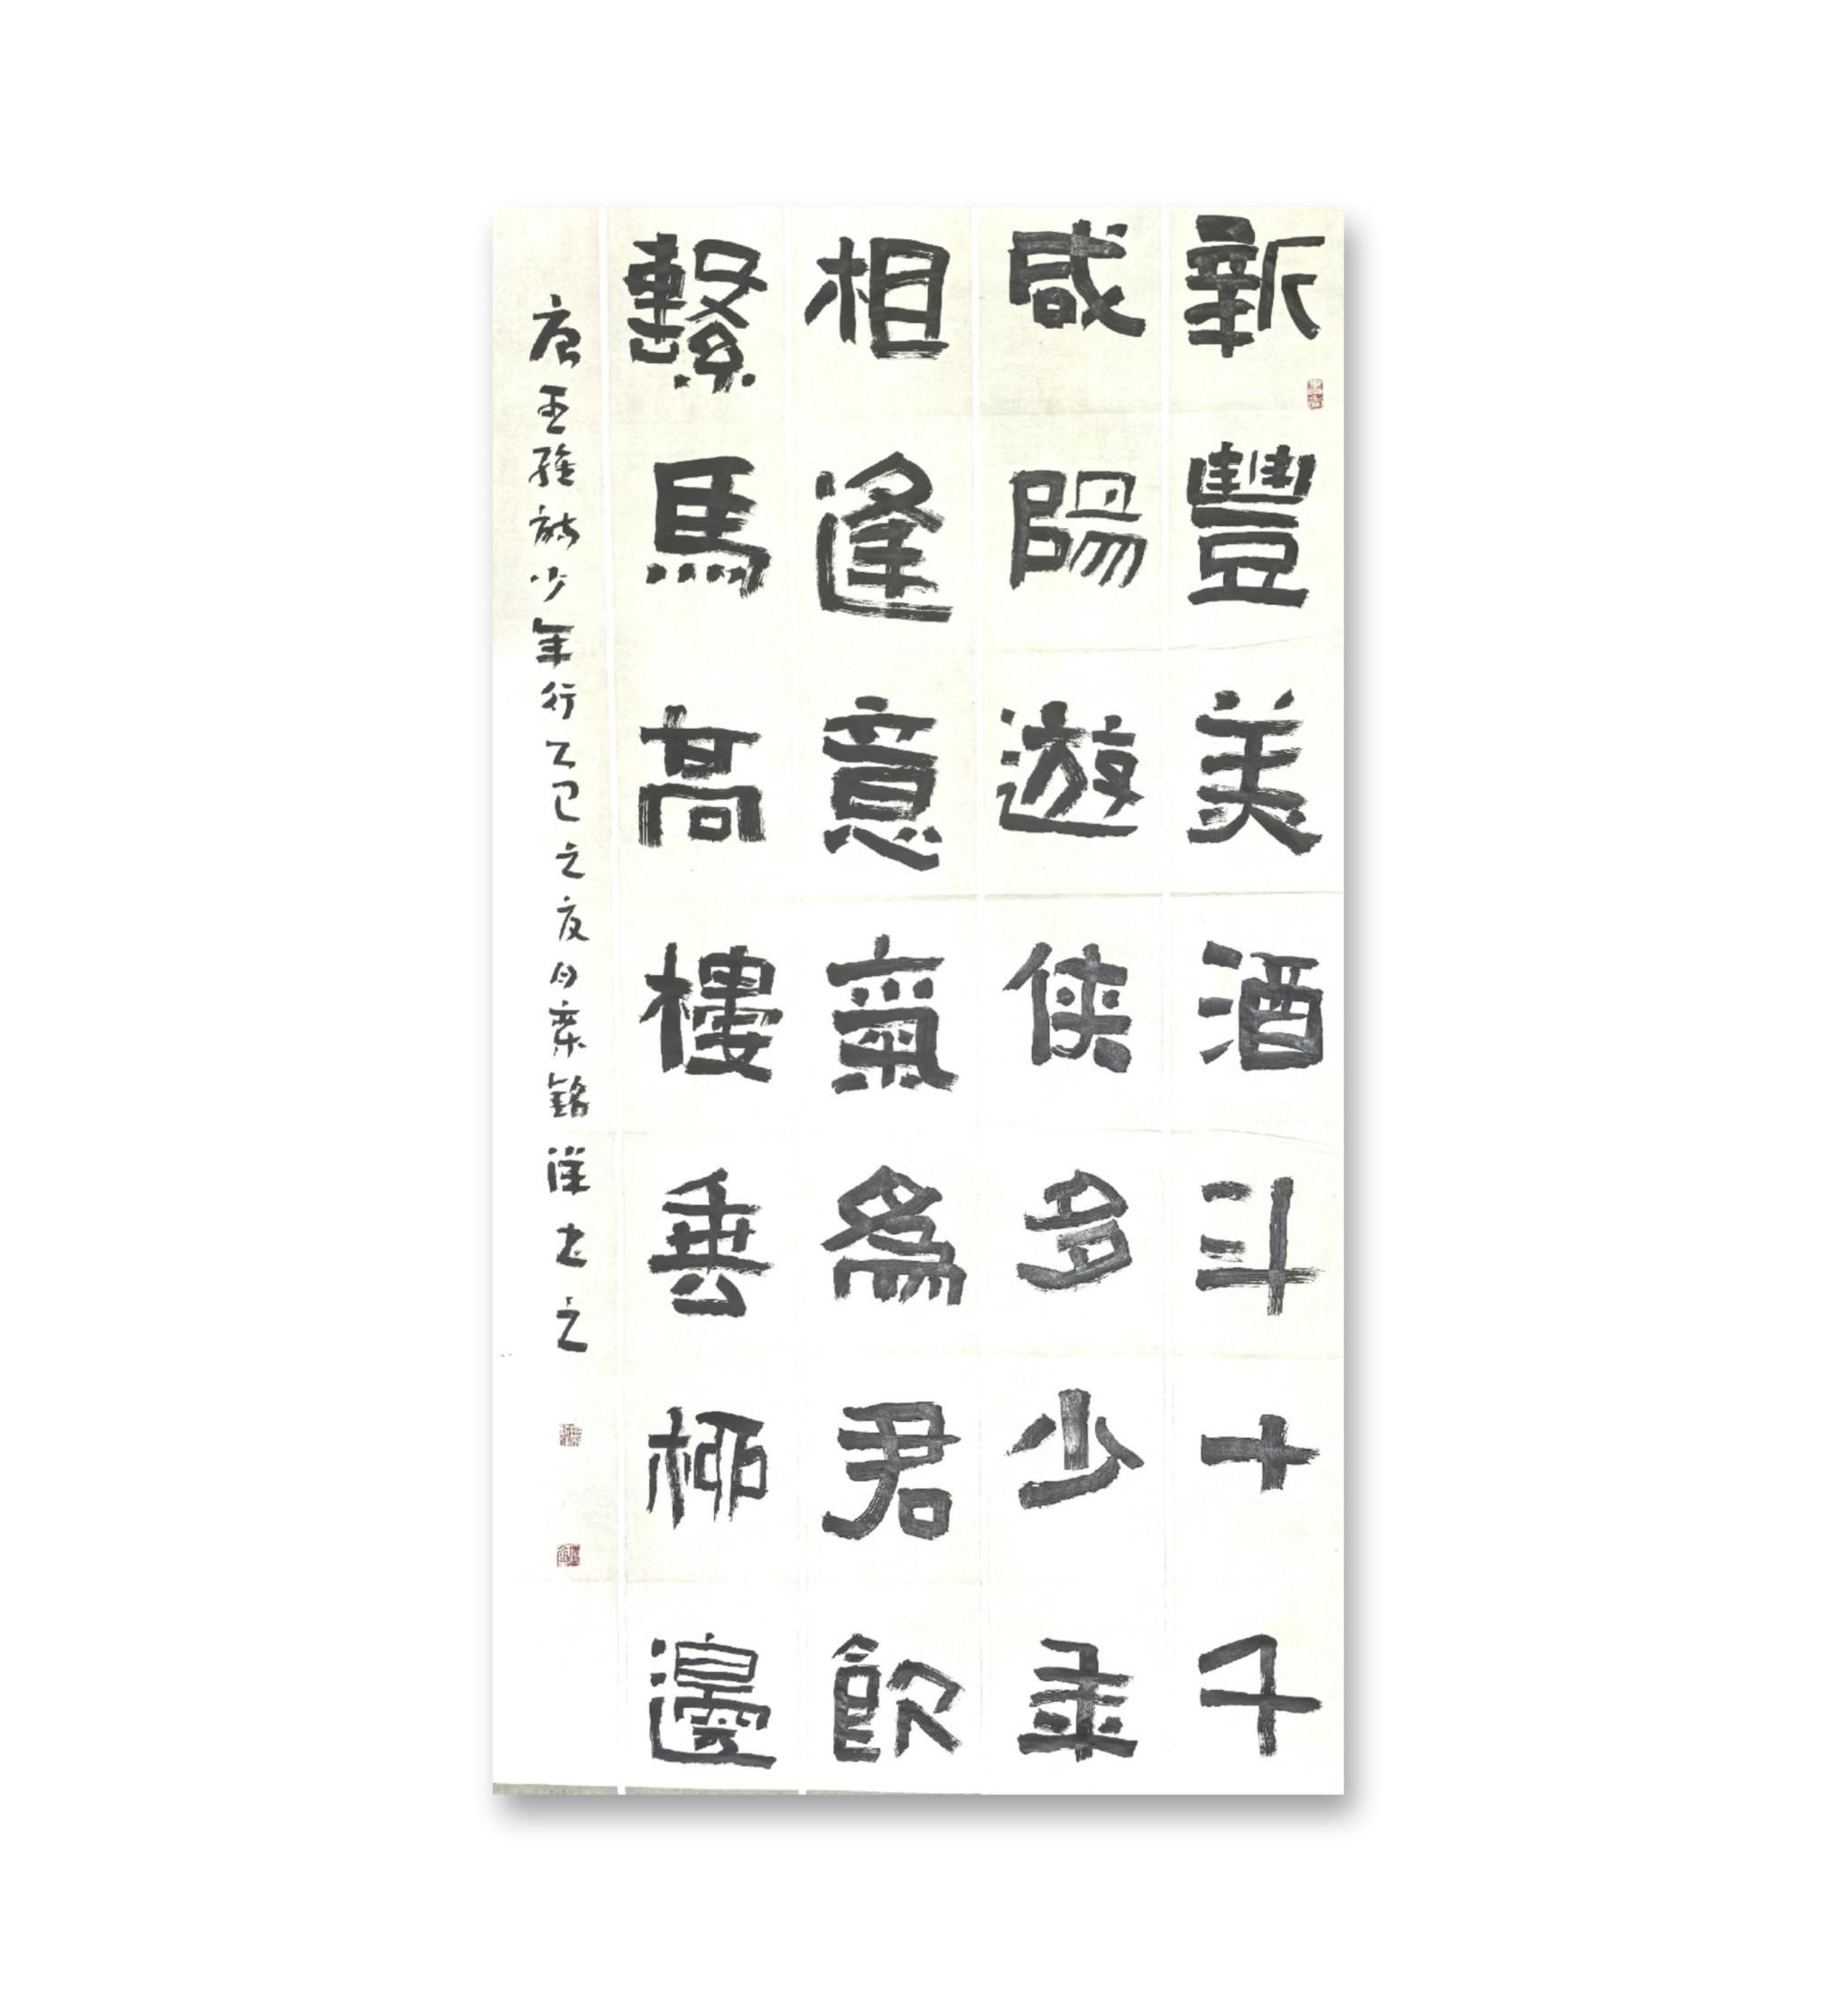 新豐美酒斗十千
咸陽遊俠多少年
相逢意氣為君飲
繫馬高樓垂柳邊
唐王維詩少年行乙巳之夏月 銘 書之